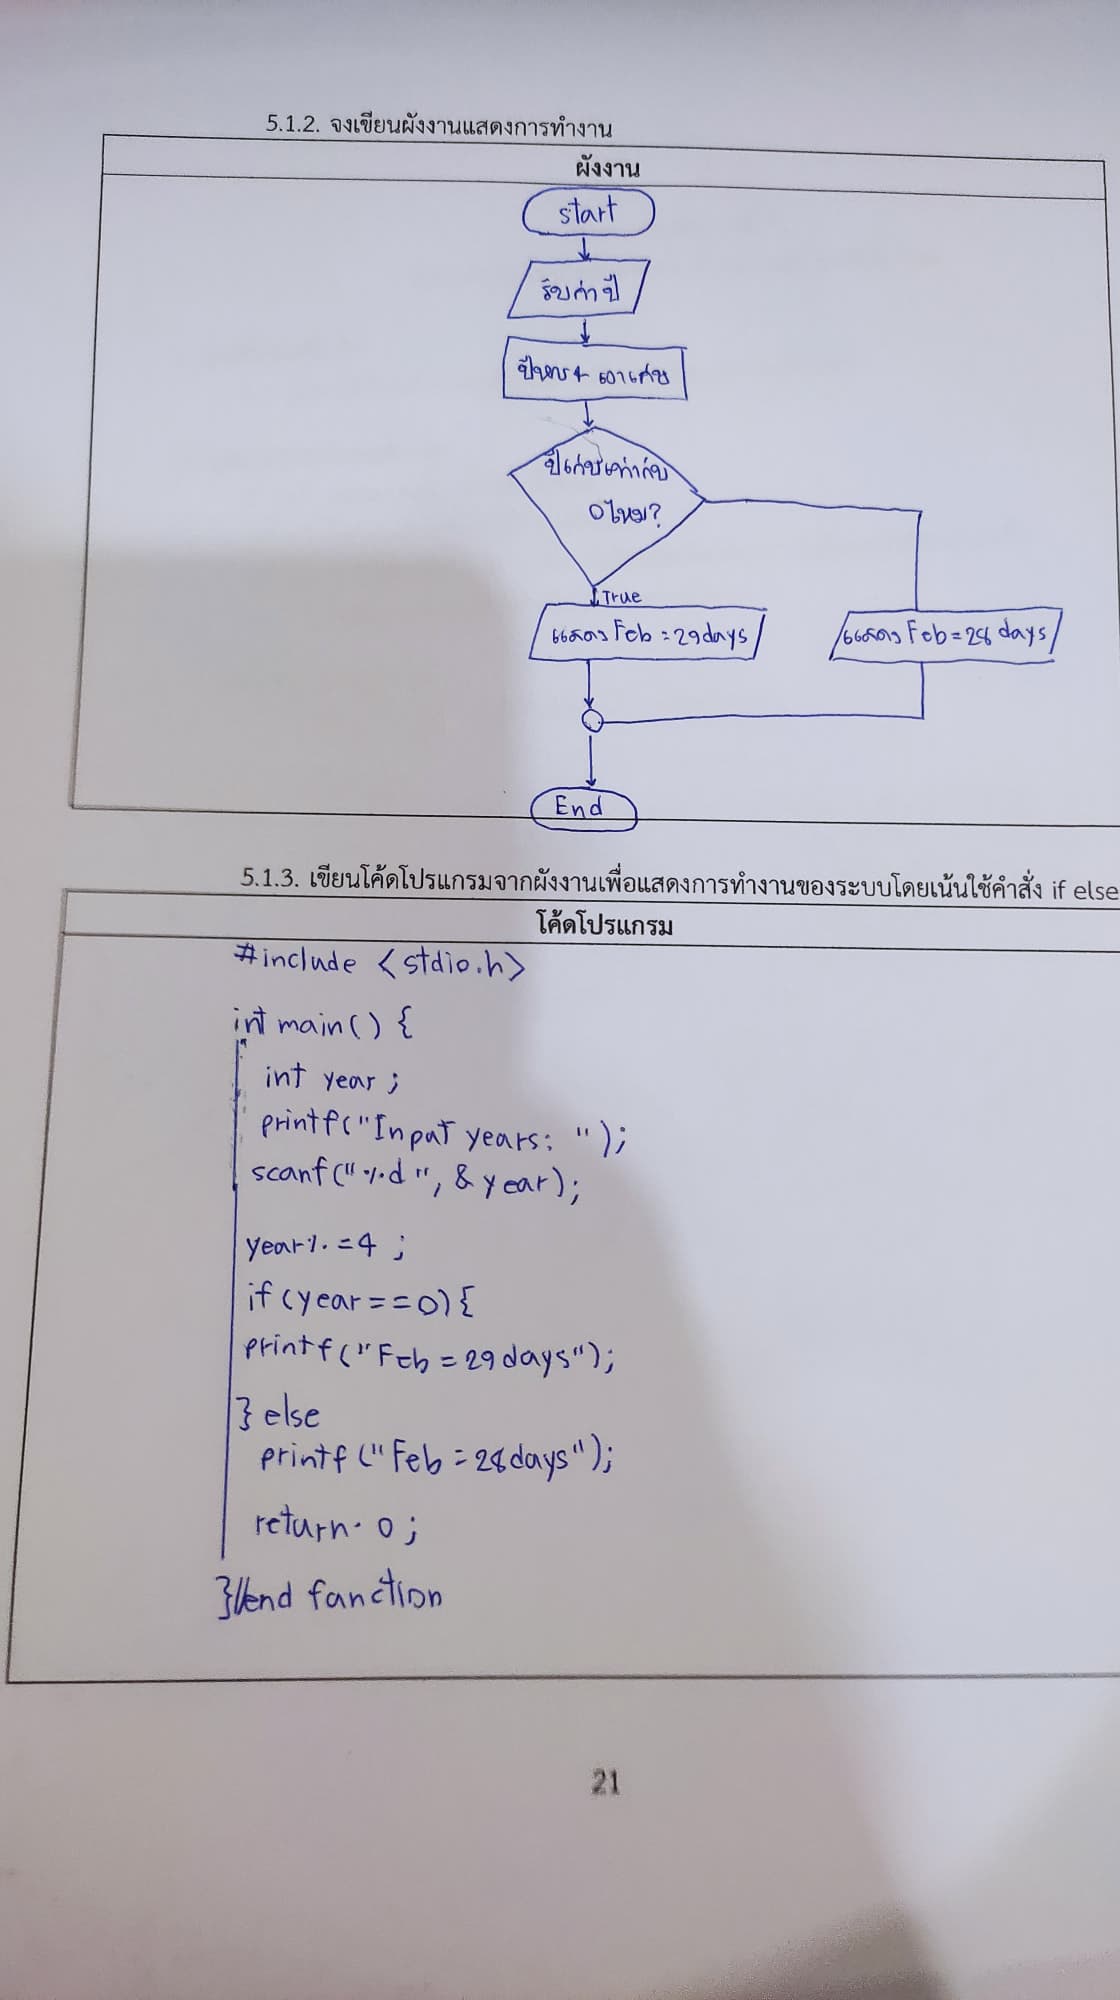 5.1.2. จงเขียนผังงานแสดงการทำงาน
ผังงาน
start
รับค่า ปี
ปีหาร 4 เอาเศษ
ปีเศษเท่ากับ
0ไหม?
True
แสดง Feb = 29days
แสดง Feb = 28 days
End
5.1.3. เขียนโค้ดโปรแกรมจากผังงานเพื่อแสดงการทำงานของระบบโดยเน้นใช้คำสั่ง if else
โค้ดโปรแกรม
#include <stdio.h>
int main() {
int year ;
printf("Input years: ");
scanf("%d", & year);
year%=4 ;
if(year==0){
printf("Feb = 29days");
} else
printf("Feb = 28days");
return 0 ;
}//end fanction
21